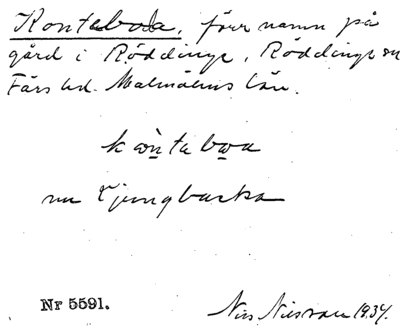 Kontaboda, förr namn på
gård i Röddinge, Röddinge sn
Färs hd. Malmöhus län.
kòn̠tabo̠a
nu Ljungbacka
Nr 5591.
Nils Nilsson 1934.